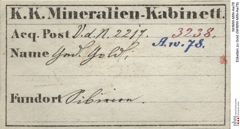 K.K. Mineralien-Kabinett.
Acq. Post V.d.N. 2217. 3238.
A.w. 78.
Name Ged. Gold.
Fundort Sibirien.